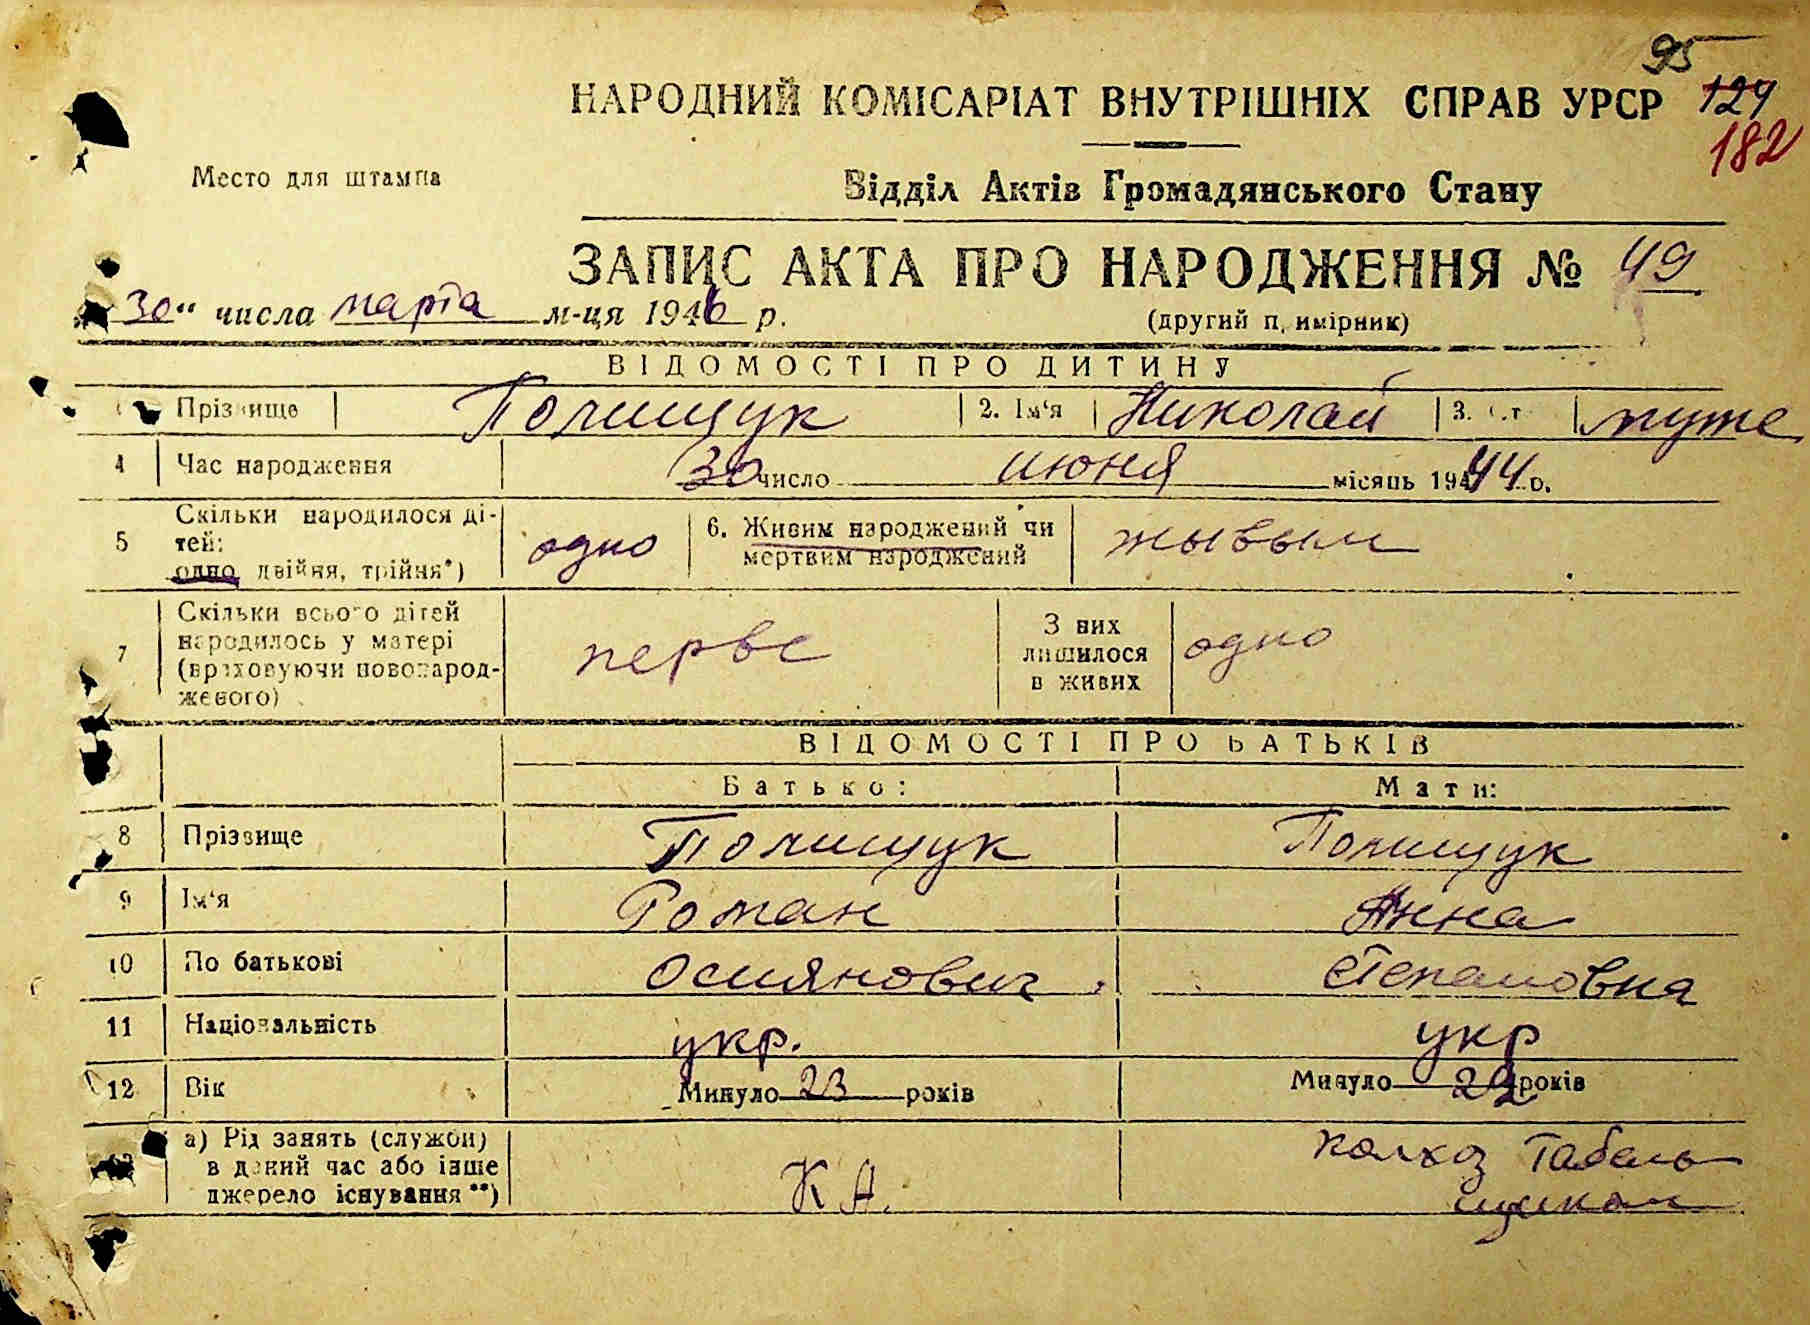 95
НАРОДНИЙ КОМІСАРІАТ ВНУТРІШНІХ СПРАВ УРСР 127
182
Место для штампа
Відділ Актів Громадянського Стану
ЗАПИС АКТА ПРО НАРОДЖЕННЯ № 49
30" числа марта м-ця 1946 р.
(другий п, имірник)
ВІДОМОСТІ ПРО ДИТИНУ
Прізвище Полищук 2. Ім'я Николай 3. муже
4 Час народження 30 число июня місяць 1944 р.
5 Скільки народилося ді-
тей:
одно двійня, трійня*) одно
6. Живим народжений чи
мертвим народжений жывым
7 Скільки всього дітей
народилось у матері
(враховуючи новонарод-
женого) перве
З них
лишилося
в живих одно
ВІДОМОСТІ ПРО БАТЬКІВ
Батько: Мати:
8 Прізвище Полищук Полищук
9 Ім'я Роман Анна
10 По батькові Осиянович Степановна
11 Національність укр. укр
12 Вік Минуло 23 років Минуло 22 років
а) Рід занять (служби)
в даний час або інше
джерело існування**) К А. колхоз Табель
щиком